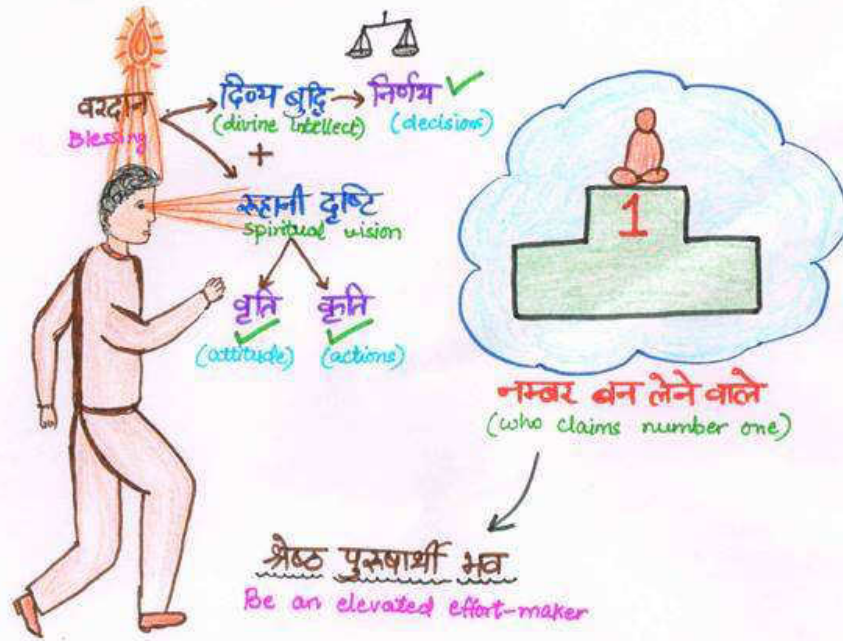 वरदान
Blessing
दिव्य बुद्धि
(divine intellect)
निर्णय
(decisions)
+
रूहानी दृष्टि
spiritual vision
वृति
(attitude)
कृति
(actions)
1
नम्बर बन लेने वाले
(who claims number one)
श्रेष्ठ पुरुषार्थी भव
Be an elevated effort-maker